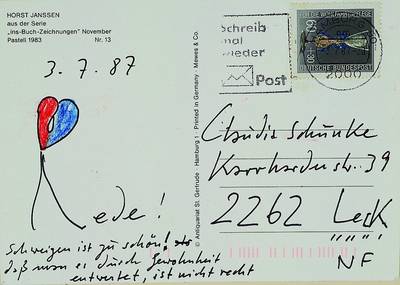 HORST JANSSEN
aus der Serie
„ins-Buch-Zeichnungen" November
Pastell 1983 Nr. 13
3.7.87
Rede!
Schweigen ist zu schön!
daß man es durch Gewohnheit
entwertet, ist nicht recht
© Antiquariat St. Gertrude · Hamburg 1 · Printed in Germany · Mewes & Co.
Schreib
mal
wieder
Post
DEUTSCHE BUNDESPOST
2000
Claudia Schünke
Karrharder str. 39
2262 Leck
NF